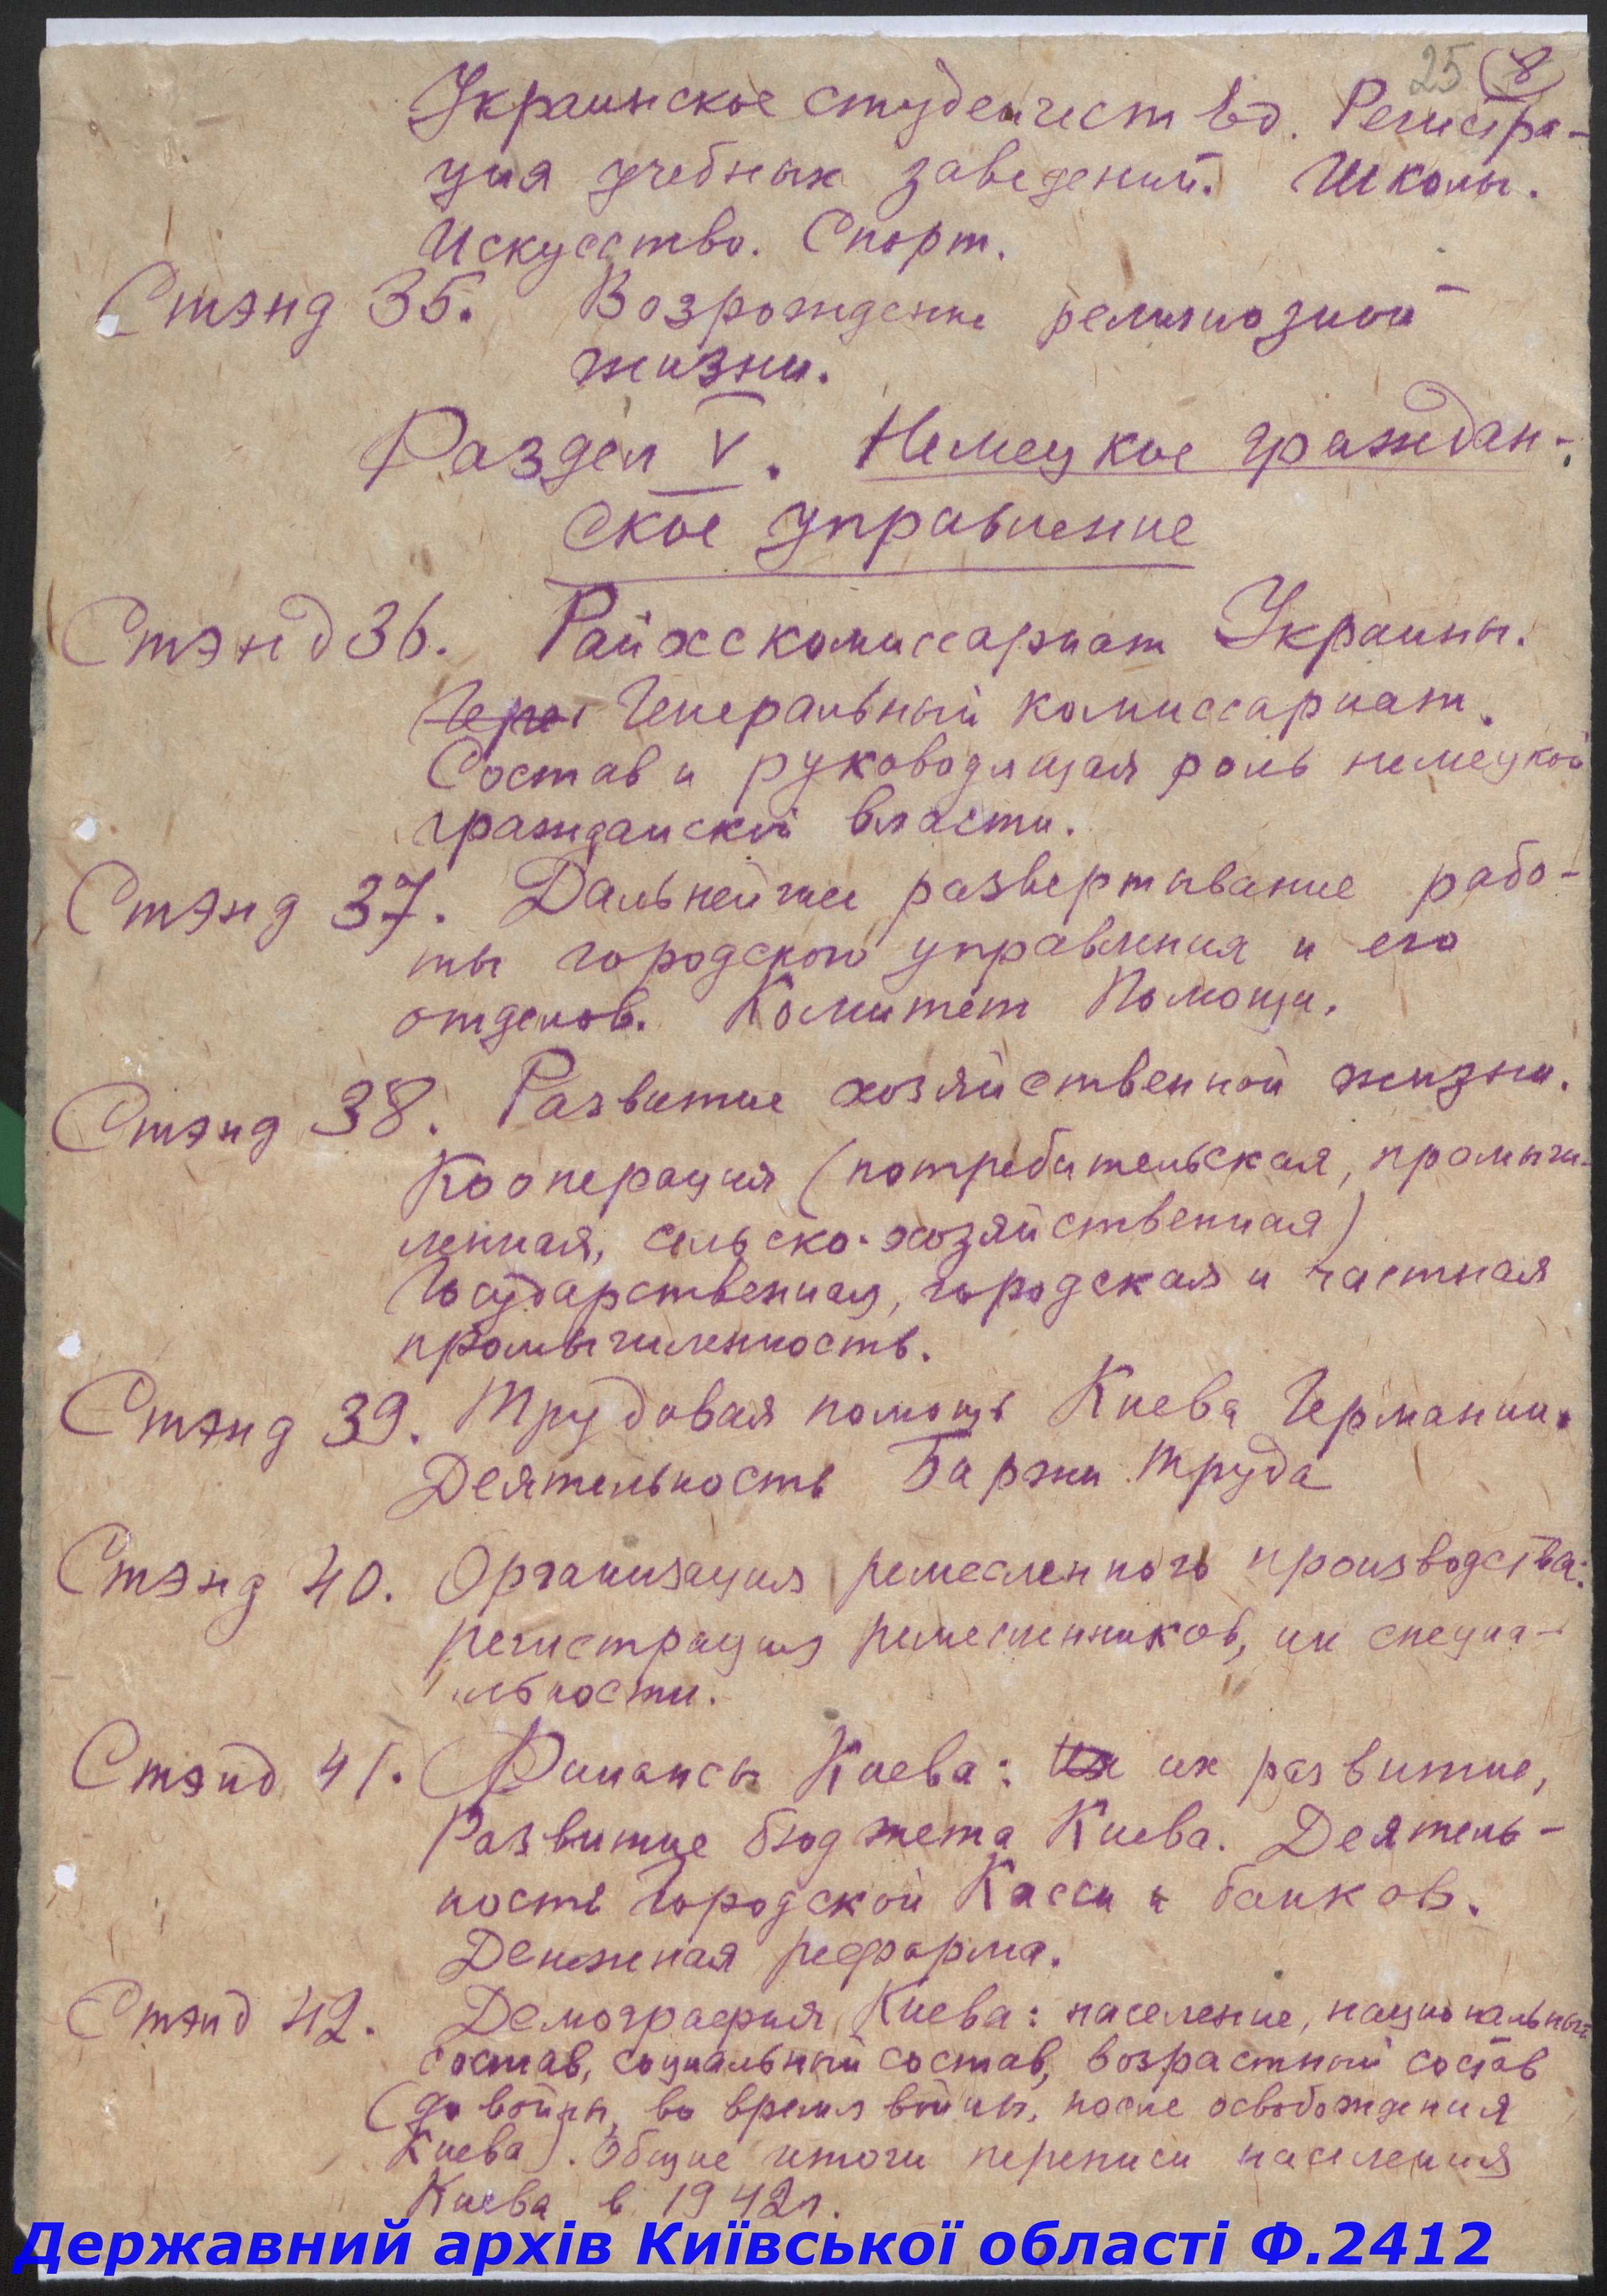 25 (8)
Украинское студенчество. Регистра-
ция учебных заведений. Школы.
Искусство. Спорт.
Стэнд 35. Возрождение религиозной
жизни.
Раздел V. Немецкое граждан-
ское управление
Стэнд 36. Райхскомиссариат Украины.
Генеральный комиссариат.
Состав и руководящая роль немецкой
гражданской власти.
Стэнд 37. Дальнейшее развертывание рабо-
ты городского управления и его
отделов. Комитет Помощи.
Стэнд 38. Развитие хозяйственной жизни.
Кооперация (потребительская, промыш-
ленная, сельско-хозяйственная)
Государственная, городская и частная
промышленность.
Стэнд 39. Трудовая помощь Киева Германии.
Деятельность Биржи труда
Стэнд 40. Организация ремесленного производства:
регистрация ремесленников, их специа-
льности.
Стэнд 41. Финансы Киева: их развитие,
Развитие бюджета Киева. Деятель-
ность Городской Кассы и банков.
Денежная реформа.
Стэнд 42. Демография Киева: население, национальный
состав, социальный состав, возрастный состав
(до войны, во время войны, после освобождения
Киева). Общие итоги переписи населения
Киева в 1942г.
Державний архів Київської області Ф.2412